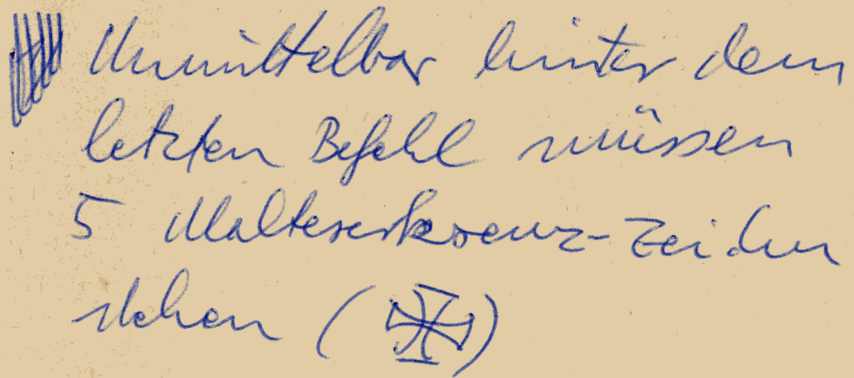 Unmittelbar hinter dem
letzten Befehl müssen
5 Malteserkreuz-Zeichen
stehen (✠)